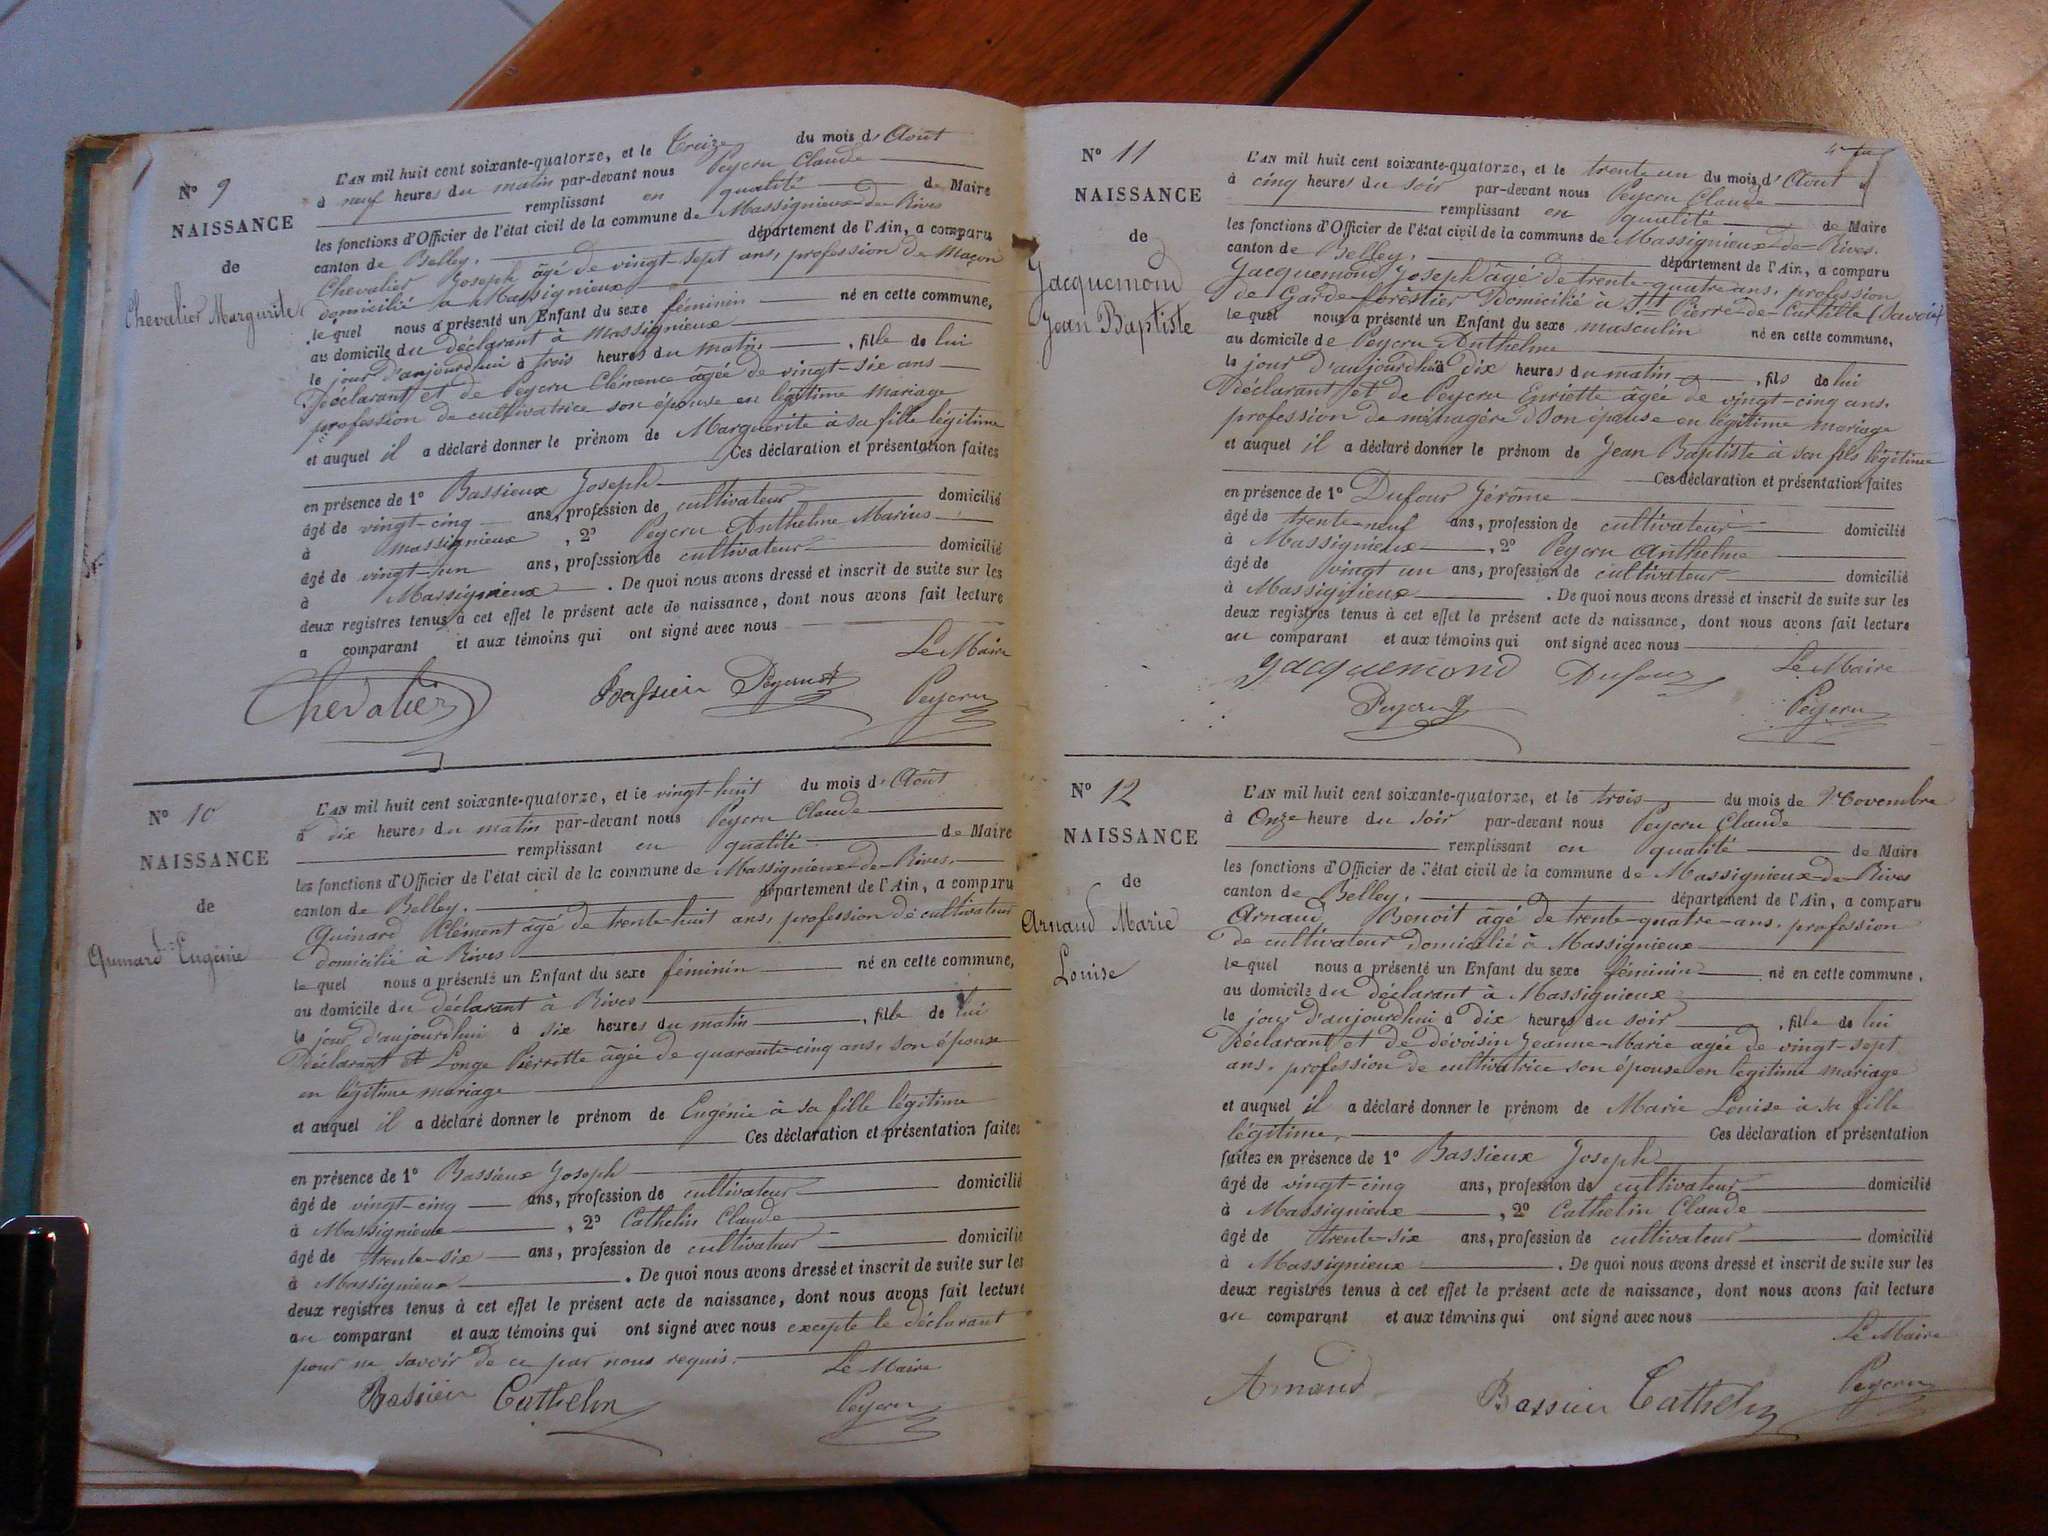 N° 9
NAISSANCE
de
Chevalier Margurite
L'AN mil huit cent soixante-quatorze, et le Treize du mois d'Août
à neuf heures du matin par-devant nous Peycru Claude
remplissant en qualité de Maire
les fonctions d'Officier de l'état civil de la commune de Massignieux-de-Rives
canton de Belley, département de l'Ain, a comparu
Chevalier Joseph âgé de vingt-sept ans, profession de Maçon
domicilié à Massignieux
le quel nous a présenté un Enfant du sexe féminin né en cette commune,
au domicile du déclarant à Massignieux
le jour d'aujourdhui à trois heures du matin, fille de lui
Déclarant et de Peycru Clémence âgée de vingt-six ans
profession de cultivatrice son épouse en légitime mariage
et auquel il a déclaré donner le prénom de Marguerite à sa fille légitime
Ces déclaration et présentation faites
en présence de 1° Bassieux Joseph
âgé de vingt-cinq ans, profession de cultivateur domicilié
à Massignieux, 2° Peycru Anthelme Marius
âgé de vingt-un ans, profession de cultivateur domicilié
à Massignieux. De quoi nous avons dressé et inscrit de suite sur les
deux registres tenus à cet effet le présent acte de naissance, dont nous avons fait lecture
a comparant et aux témoins qui ont signé avec nous
Le Maire
Chevalier Bassieu Peycru Peycru
N° 10
NAISSANCE
de
Guinard Eugénie
L'AN mil huit cent soixante-quatorze, et le vingt-huit du mois d'Août
à dix heures du matin par-devant nous Peycru Claude
remplissant en qualité de Maire
les fonctions d'Officier de l'état civil de la commune de Massignieux-de-Rives,
canton de Belley, département de l'Ain, a comparu
Guinard Clément âgé de trente-huit ans, profession de cultivateur
domicilié à Rives
le quel nous a présenté un Enfant du sexe féminin né en cette commune,
au domicile du déclarant à Rives
le jour d'aujourdhui à six heures du matin, fille de lui
Déclarant et Longe Pierrette âgée de quarante-cinq ans, son épouse
en légitime mariage
et auquel il a déclaré donner le prénom de Eugénie à sa fille légitime
Ces déclaration et présentation faites
en présence de 1° Bassieux Joseph
âgé de vingt-cinq ans, profession de cultivateur domicilié
à Massignieux, 2° Cathelin Claude
âgé de trente-six ans, profession de cultivateur domicilié
à Massignieux. De quoi nous avons dressé et inscrit de suite sur les
deux registres tenus à cet effet le présent acte de naissance, dont nous avons fait lecture
au comparant et aux témoins qui ont signé avec nous excepté le déclarant
pour ne savoir de ce par nous requis. Le Maire
Bassieu Cathelin Peycru
N° 11
NAISSANCE
de
Jacquemond
Jean Baptiste
L'AN mil huit cent soixante-quatorze, et le trente un du mois d'Août
à cinq heures du soir par-devant nous Peycru Claude
remplissant en qualité de Maire
les fonctions d'Officier de l'état civil de la commune de Massignieux-de-Rives.
canton de Belley, département de l'Ain, a comparu
Jacquemond Joseph âgé de trente-quatre ans, profession
de Garde-forêstier Domicilié à St Pierre-de-Curtille (Savoie)
le quel nous a présenté un Enfant du sexe masculin né en cette commune,
au domicile de Peycru Anthelme
le jour d'aujourdhui à dix heures du matin, fils de lui
Déclarant et de Peycru Enriette âgée de vingt-cinq ans,
profession de ménagère Son épouse en légitime mariage
et auquel il a déclaré donner le prénom de Jean Baptiste à son fils légitime
Ces déclaration et présentation faites
en présence de 1° Dufour Jérôme
âgé de trente-neuf ans, profession de cultivateur domicilié
à Massignieux, 2° Peycru Anthelme
âgé de vingt un ans, profession de cultivateur domicilié
à Massignieux. De quoi nous avons dressé et inscrit de suite sur les
deux registres tenus à cet effet le présent acte de naissance, dont nous avons fait lecture
au comparant et aux témoins qui ont signé avec nous
Jacquemond Dufour Le Maire
Peycru Peycru
N° 12
NAISSANCE
de
Arnaud Marie
Louise
L'AN mil huit cent soixante-quatorze, et le trois du mois de Novembre
à Onze heure du soir par-devant nous Peycru Claude
remplissant en qualité de Maire
les fonctions d'Officier de l'état civil de la commune de Massignieux-de-Rives
canton de Belley, département de l'Ain, a comparu
Arnaud, Benoit âgé de trente-quatre-ans, profession
de cultivateur domicilié à Massignieux
le quel nous a présenté un Enfant du sexe féminin né en cette commune,
au domicile du déclarant à Massignieux
le jour d'aujourdhui à dix heures du soir, fille de lui
Déclarant et de devoisin Jeanne-Marie agée de vingt-sept
ans, profession de cultivatrice son épouse en légitime mariage
et auquel il a déclaré donner le prénom de Marie Louise à sa fille
légitime, Ces déclaration et présentation
faites en présence de 1° Bassieux Joseph
âgé de vingt-cinq ans, profession de cultivateur domicilié
à Massignieux, 2° Cathelin Claude
âgé de trente-six ans, profession de cultivateur domicilié
à Massignieux. De quoi nous avons dressé et inscrit de suite sur les
deux registres tenus à cet effet le présent acte de naissance, dont nous avons fait lecture
au comparant et aux témoins qui ont signé avec nous
Le Maire
Arnaud Bassieu Cathelin Peycru